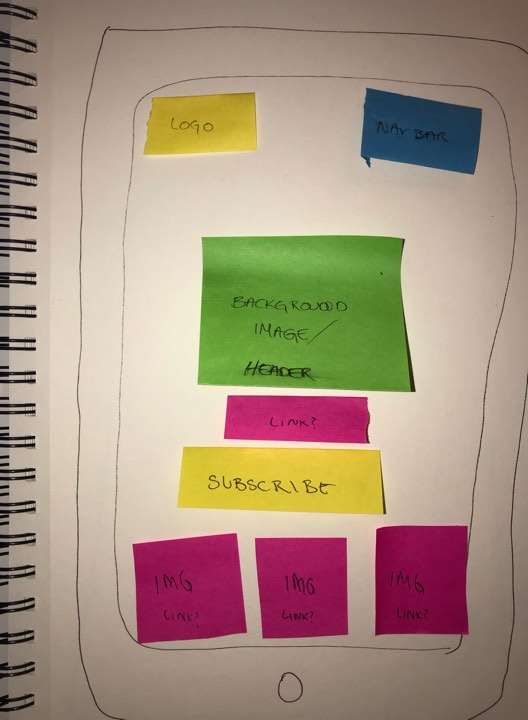 LOGO
NAV BAR
BACKGROUND
IMAGE/
HEADER
LINK?
SUBSCRIBE
IMG
LINK?
IMG
LINK?
IMG
LINK?